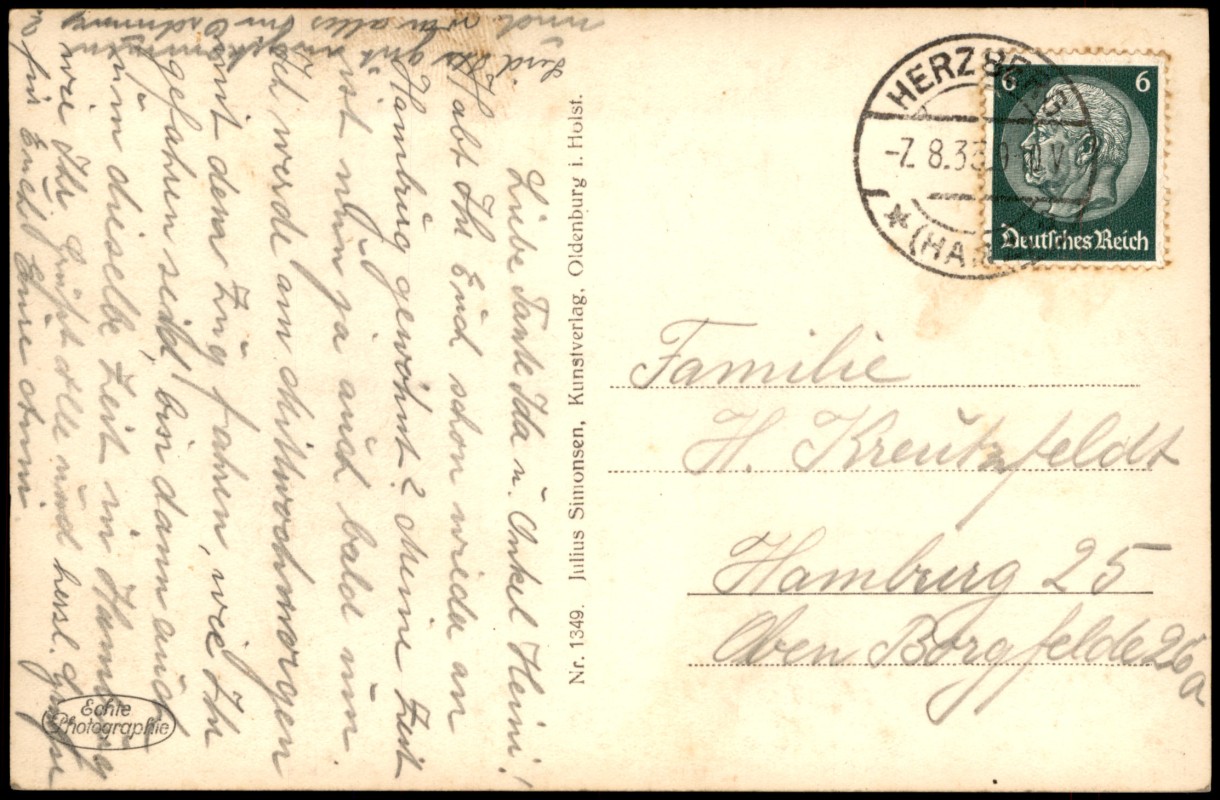 Liebe Tante Ida u. Onkel Heini!
Habt Ihr Euch schon wieder an
Hamburg gewöhnt? Meine Zeit
ist nun ja auch bald um.
Ich werde am Mittwochmorgen
mit dem Zug fahren, wie Ihr
gefahren seid, bin dann auch
um dieselbe Zeit in Hamburg
wie Ihr. Grüßt alle und herzl. Grüße
für Euch Eure Anni
Seid Ihr gut
und war alles in Ordnung
Nr. 1349. Julius Simonsen, Kunstverlag, Oldenburg i. Holst.
Echte
Photographie
HERZBERG
-7.8.33 V
(HARZ)
6 6
Deutsches Reich
Familie
H. Kreutzfeldt
Hamburg 25
Oben Borgfelde 26a